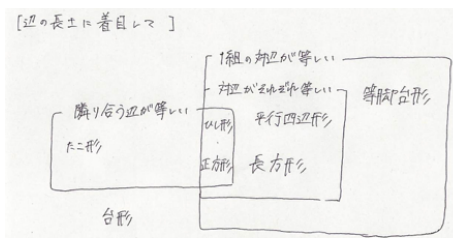 [辺の長さに着目して]
1組の対辺が等しい
対辺がそれぞれ等しい
等脚台形
隣り合う辺が等しい
ひし形
平行四辺形
たこ形
正方形
長方形
台形